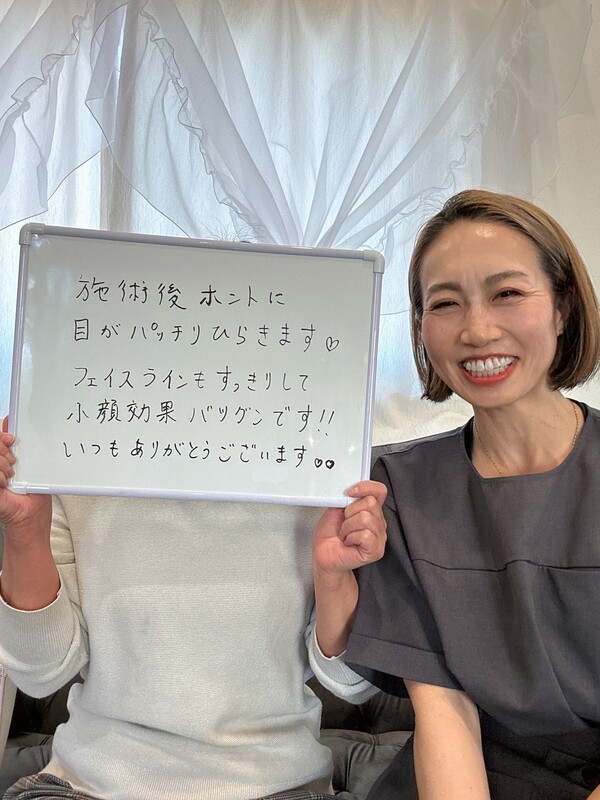 施術後 ホントに
目がパッチリひらきます♡
フェイスラインもすっきりして
小顔効果 バツグンです!!
いつもありがとうございます♥♥